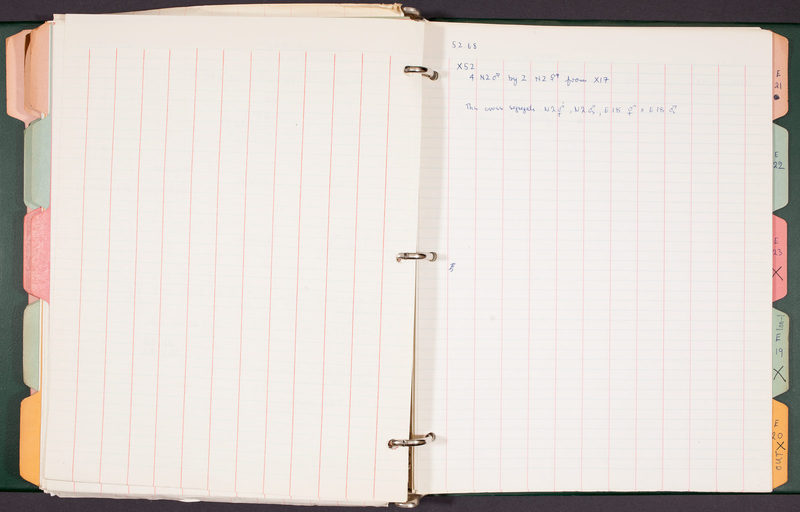 52.68
X52
4 N2♂ by 2 N2 ♀ from X17
This cross segregate N2 ♀, N2 ♂, E15 ♀ + E15 ♂
E
21
E
22
E
23
X
E
19
X
E
20
X
OUT